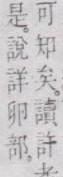 可知矣。讀許者
是。說詳卵部。